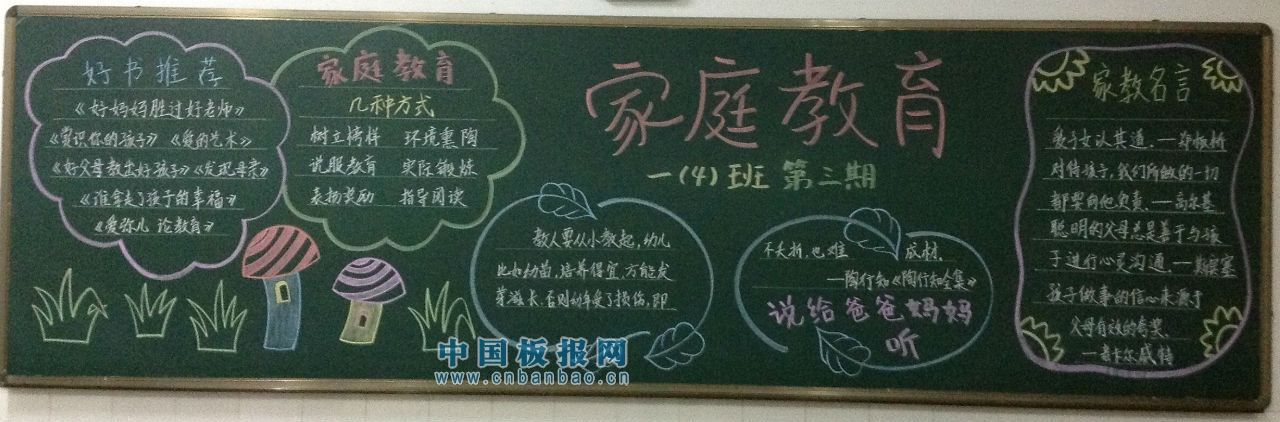 好书推荐
《好妈妈胜过好老师》
《赏识你的孩子》 《爱的艺术》
《好父母教出好孩子》《发现母亲》
《谁拿走了孩子的幸福》
《爱弥儿 论教育》
家庭教育
几种方式
树立榜样 环境熏陶
说服教育 实际锻炼
表扬奖励 指导阅读
家庭教育
一(4)班 第三期
教人要从小教起,幼儿
比如幼苗,培养得宜,方能发
芽滋长,否则幼年受了损伤,即
不夭折,也难 成材.
——陶行知《陶行知全集》
说给爸爸妈妈
听
家教名言
爱子女以其道.——郑板桥
对待孩子,我们所做的一切
都要向他负责.——高尔基
聪明的父母总是善于与孩
子进行心灵沟通.——斯宾塞
孩子做事的信心来源于
父母有效的夸奖.
——老卡尔威特
中国板报网
www.cnbanbao.cn